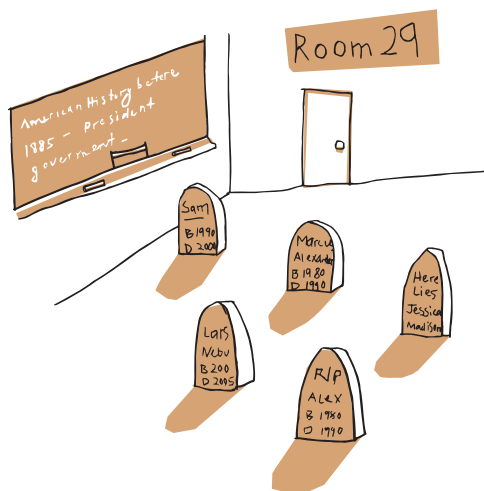 Room 29
American History before
1885 - President
government -
Sam
B 1990
D 2000
Marcus
Alexander
B 1980
D 1990
Here
Lies
Jessica
Madison
Lars
Nebu
B 200
D 2005
RIP
ALEX
B 1980
D 1990